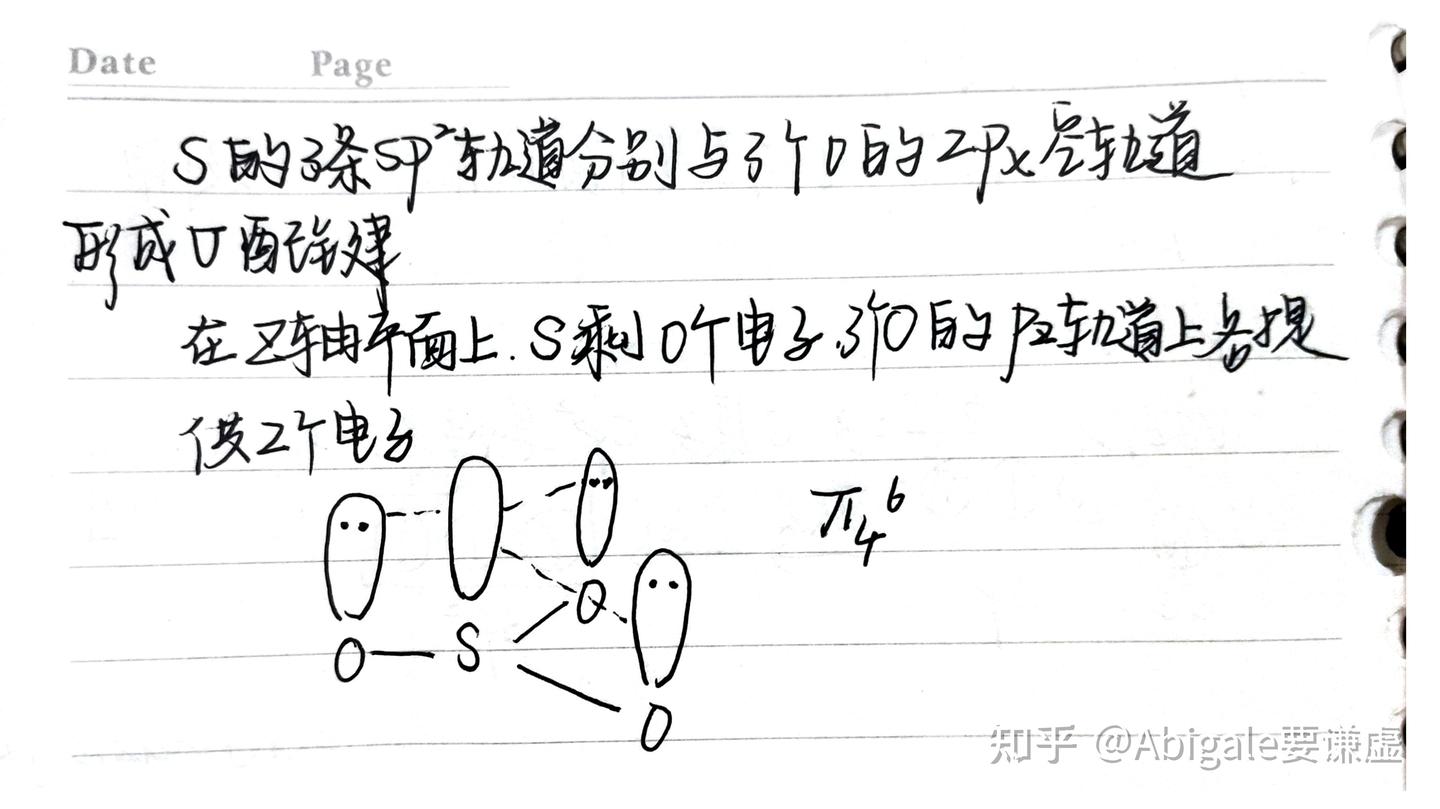 Date Page
S的3条SP²轨道分别与3个O的2Px空轨道
形成σ配键
在Z轴平面上.S剩0个电子.3个O的Pz轨道上各提
供2个电子
π₄⁶
O S O
O
知乎 @Abigale要谦虚